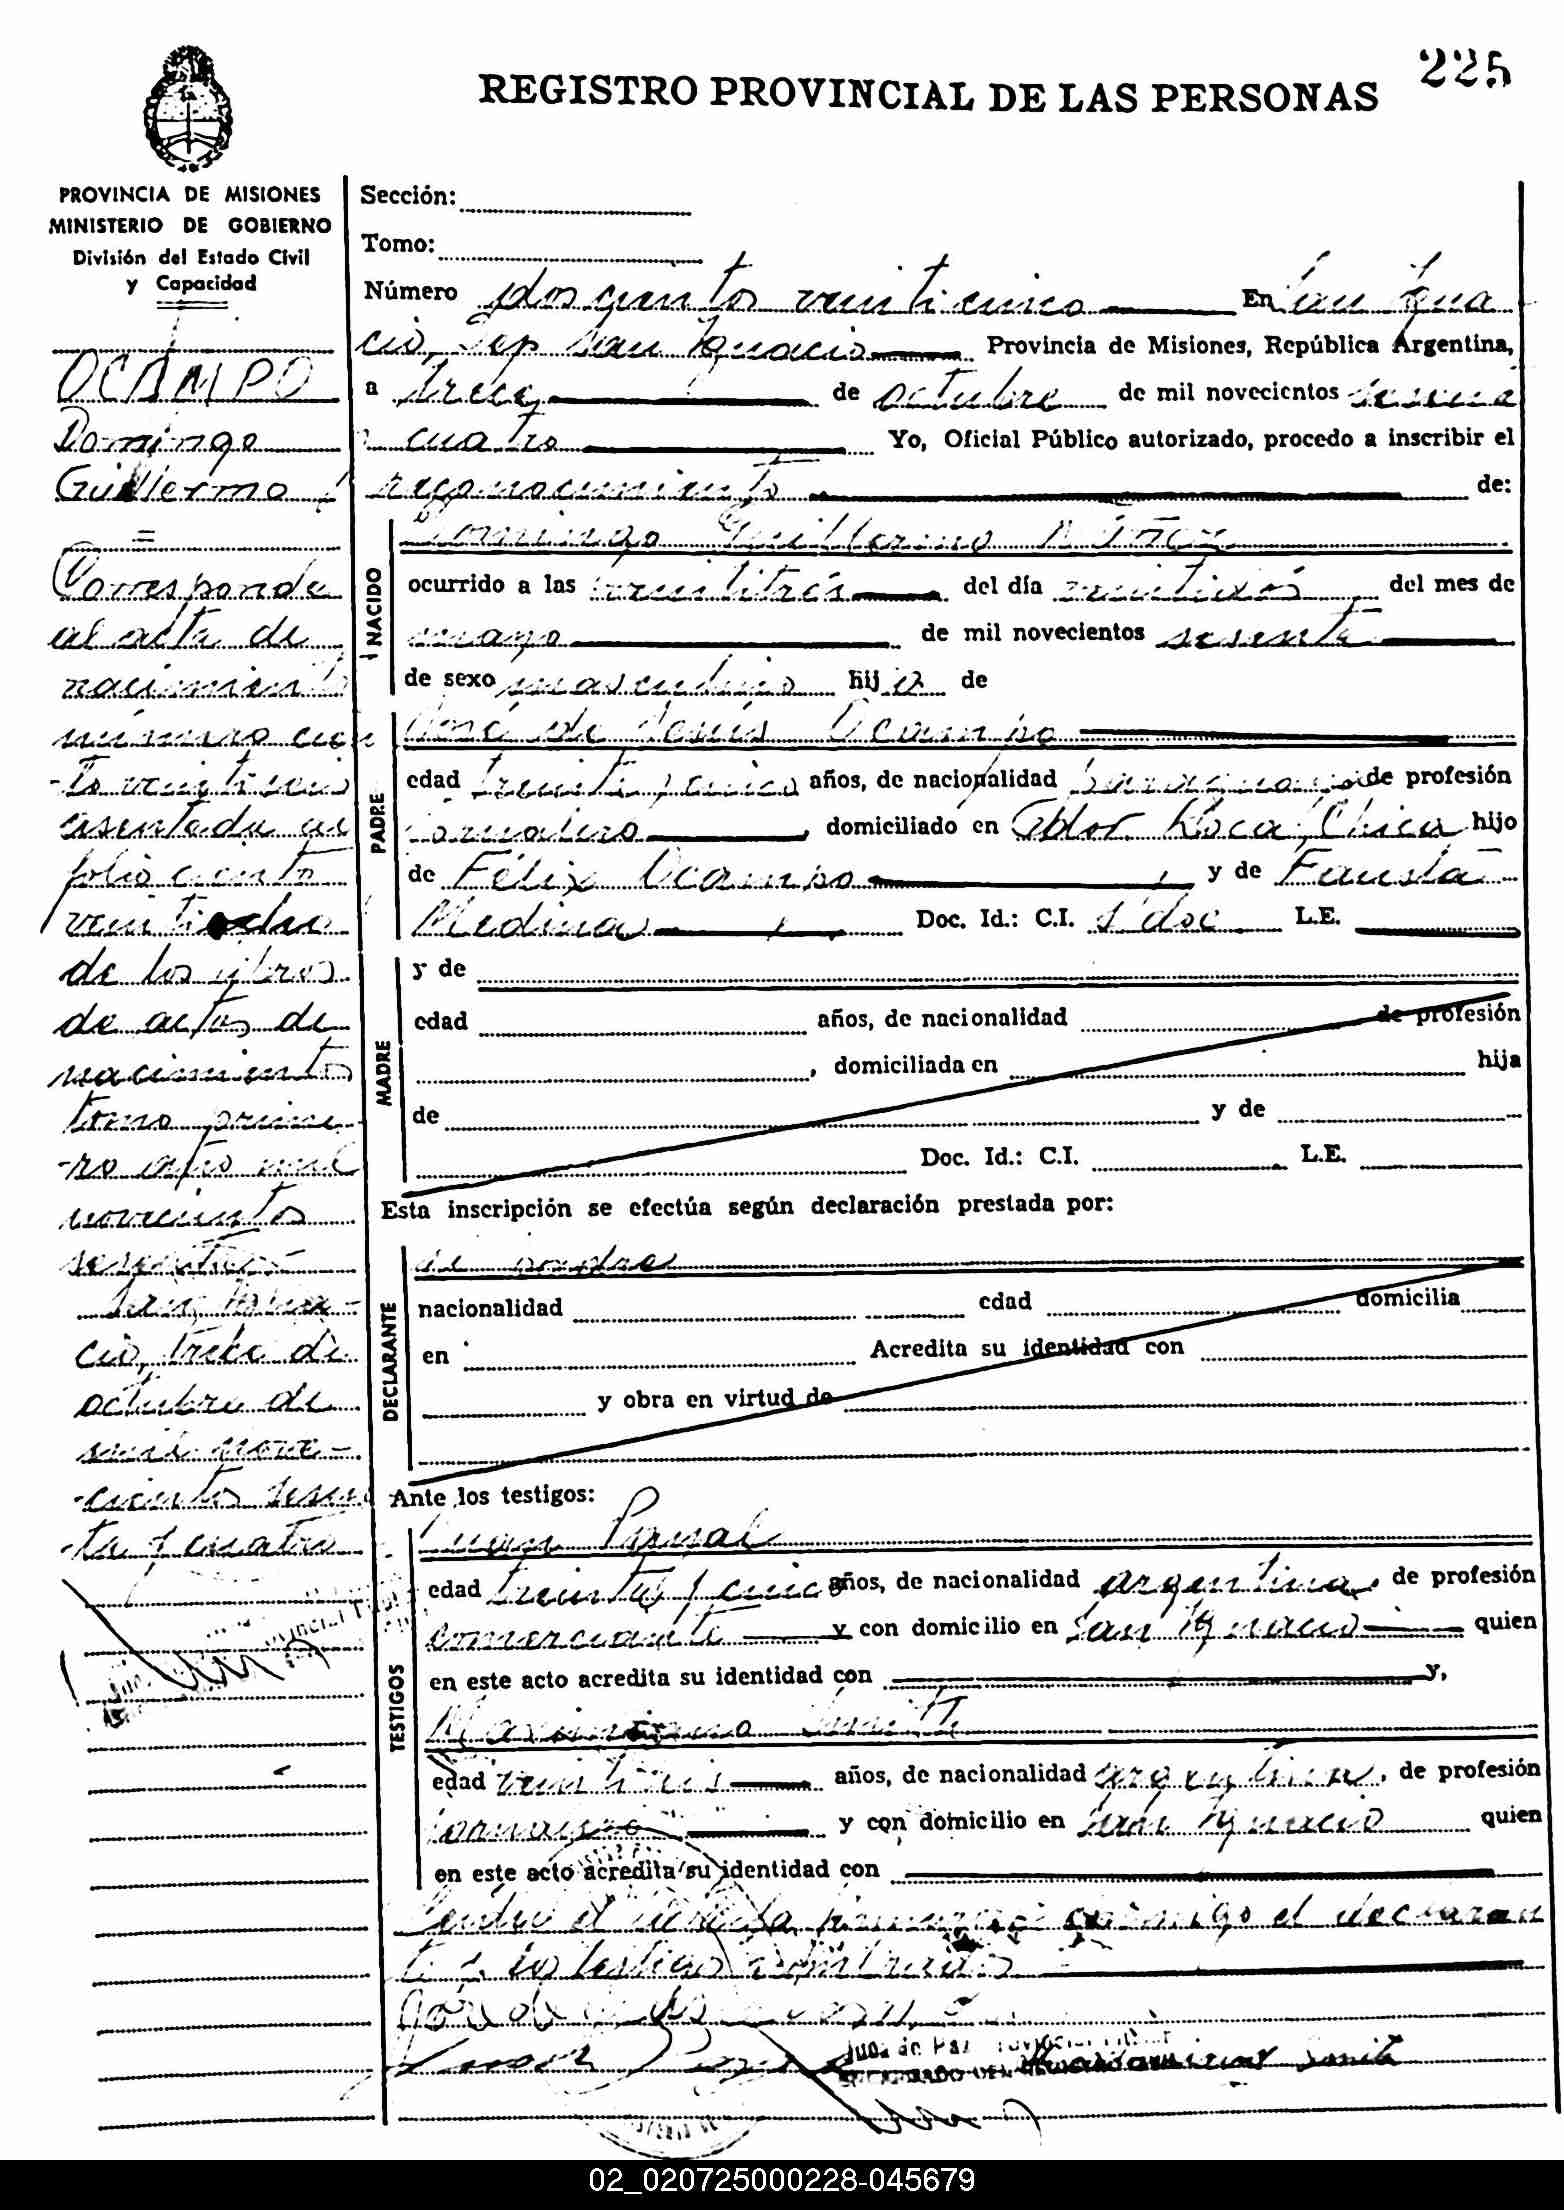 225
REGISTRO PROVINCIAL DE LAS PERSONAS
PROVINCIA DE MISIONES
MINISTERIO DE GOBIERNO
División del Estado Civil
y Capacidad
OCAMPO
Domingo
Guillermo
=
Corresponde
al acta de
nacimiento
número cien
-to veintiseis
asentada al
folio ciento
veintiocho
de los libros
de actas de
nacimiento
tomo prime
-ro año mil
novecientos
sesenta.-
San Igna-
cio, trece de
octubre de
mil nove-
-cientos sesen
-ta y cuatro
Sección:
Tomo:
Número doscientos veinticinco En San Igna
cio, Dep San Ignacio Provincia de Misiones, República Argentina,
a trece de octubre de mil novecientos sesenta
y cuatro Yo, Oficial Público autorizado, procedo a inscribir el
reconocimiento de:
NACIDO
Domingo Guillermo
ocurrido a las veintitrés del día veintidós del mes de
mayo de mil novecientos sesenta
de sexo masculino hijo de
PADRE
José de Jesús Ocampo
edad treinta y cinco años, de nacionalidad paraguaya de profesión
jornalero, domiciliado en Gdor Roca Chica hijo
de Félix Ocampo y de Fausta
Medina Doc. Id.: C.I. s/doc L.E.
MADRE
y de
edad años, de nacionalidad de profesión
, domiciliada en hija
de y de
Doc. Id.: C.I. L.E.
Esta inscripción se efectúa según declaración prestada por:
DECLARANTE
el padre
nacionalidad edad domicilia
en Acredita su identidad con
y obra en virtud de
Ante los testigos:
TESTIGOS
Juan
edad treinta y cinco años, de nacionalidad argentina, de profesión
comerciante y con domicilio en San Ignacio quien
en este acto acredita su identidad con y,
Maximiano Smith
edad años, de nacionalidad argentina, de profesión
jornalero y con domicilio en San Ignacio quien
en este acto acredita su identidad con
Leída el acta la firman conmigo el declaran
te y los testigos nombrados
Juez de Paz
02_020725000228-045679